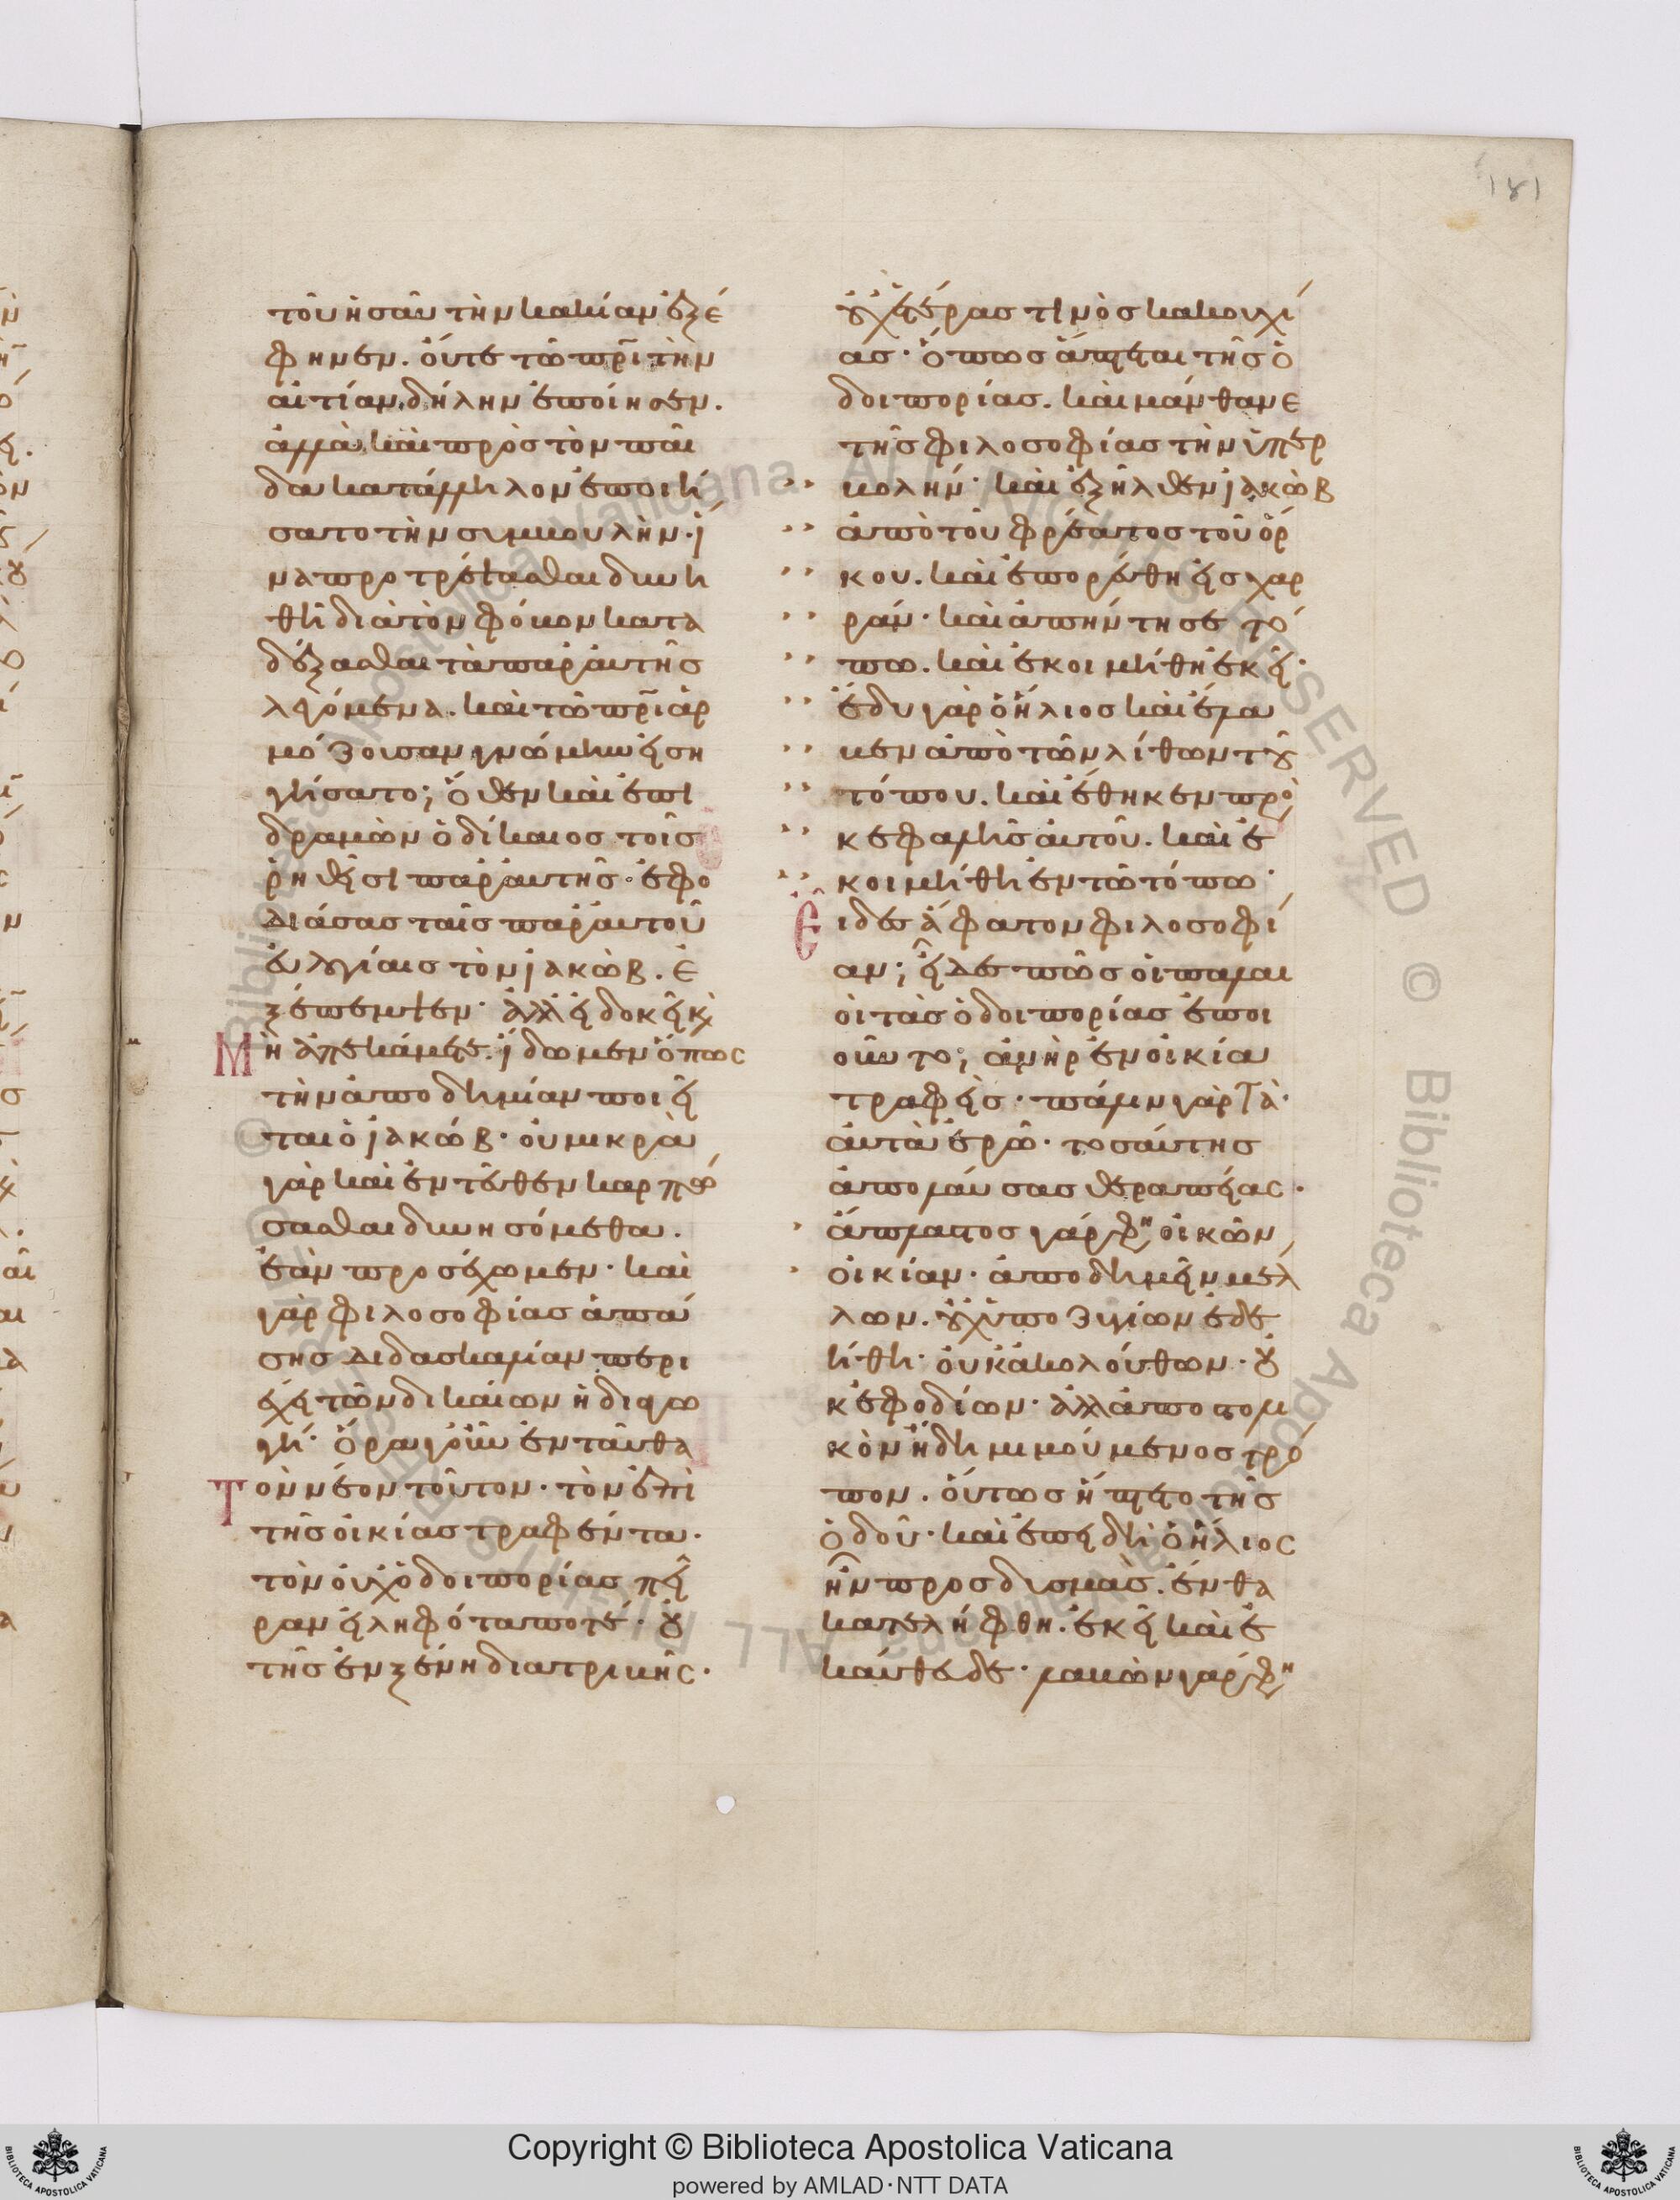 τοῦ ἡσαῦ τὴν κακίαν ἐξέ
φηνεν. οὔτε τῶ πρι τὴν
αἰτίαν δήλην ἐποίησεν.
ἀλλὰ καὶ πρὸς τὸν παῖ
δα κατάλληλον ἐποιή
σατο τὴν συμβουλὴν· ἵ
να προτρέψασθαι δυνη
θῆ διὰ τὸν φόβον κατα
δέξασθαι τὰ παρ' αὐτῆς
λεγόμενα. καὶ τῶ πρι ἁρ
μόζουσαν γνώμην εἰση
γήσατο; ὅθεν καὶ ἐπι
δραμὼν ὁ δίκαιος τοῖς
ῥηθεῖσι παρ' αὐτῆς· ἐφο
διάσας ταῖς παρ' αὐτοῦ
εὐλογίαις τὸν ἰακὼβ. ἐ
ξέπεμψεν· ἀλλ' εἰ δοκεῖ κὶ
Μὴ ἀπεκάμετε. ἴδωμεν ὅπως
τὴν ἀποδημίαν ποιεῖ
ται ὁ ἰακώβ· οὐ μικρὰ
γὰρ καὶ ἐντεῦθεν καρπώ
σασθαι δυνησόμεθα.
ἐὰν προσέχωμεν· καὶ
γὰρ φιλοσοφίας ἁπά
σης διδασκαλίαν περι
έχει τῶν δικαίων ἡ διαγω
γή· ὅρα γοῦν ἐνταῦθα
Τὸν νέον τοῦτον· τὸν ἐπὶ
τῆς οἰκίας τραφέντα.
τὸν οὐχ ὁδοιπορίας πεῖ
ραν εἰληφότα ποτέ· οὐ
τῆς ἐν ξένη διατριβῆς.
οὐχ ἑτέρας τινὸς κακουχί
ας· ὅπως ἅπτεται τῆς ὁ
δοιπορίας. καὶ μάνθανε
τῆς φιλοσοφίας τὴν ὑπερ
βολήν· καὶ ἐξῆλθεν ἰακὼβ
ἀπὸ τοῦ φρέατος τοῦ ὅρ
κου. καὶ ἐπορεύθη εἰς χαρ
ράν· καὶ ἀπήντησε τό
πω. καὶ ἐκοιμήθη ἐκεῖ·
ἔδυ γὰρ ὁ ἥλιος καὶ ἔλα
βεν ἀπὸ τῶν λίθων τοῦ
τόπου. καὶ ἔθηκεν πρὸ
κεφαλῆς αὐτοῦ. καὶ ἐ
κοιμήθη ἐν τῶ τόπω·
Εἶδες ἄφατον φιλοσοφί
αν; εἶδες πῶς οἱ παλαι
οὶ τὰς ὁδοιπορίας ἐποι
οῦντο; ἀνὴρ ἐν οἰκία
τραφεὶς· πάλιν γὰρ τὰ
αὐτὰ ἐρῶ· τοσαύτης
ἀπολαύσας θεραπείας.
ἄπλαστος γάρ φη οἰκῶν
οἰκίαν· ἀποδημεῖν μέλ
λων. οὐχ ὑποζυγίων ἐδε
ήθη· οὐκ ἀκολούθων· οὐ
κ ἐφοδίων· ἀλλ' ἀποστολι
κὸν ἤδη μιμούμενος τρό
πον. οὕτως ἥπτετο τῆς
ὁδοῦ· καὶ ἐπειδὴ ὁ ἥλιος
ἦν προς δυσμὰς. ἔνθα
κατελήφθη. ἐκεῖ καὶ ἐ
κάθευδε· λαβὼν γάρ φη
181
Copyright © Biblioteca Apostolica Vaticana
powered by AMLAD·NTT DATA